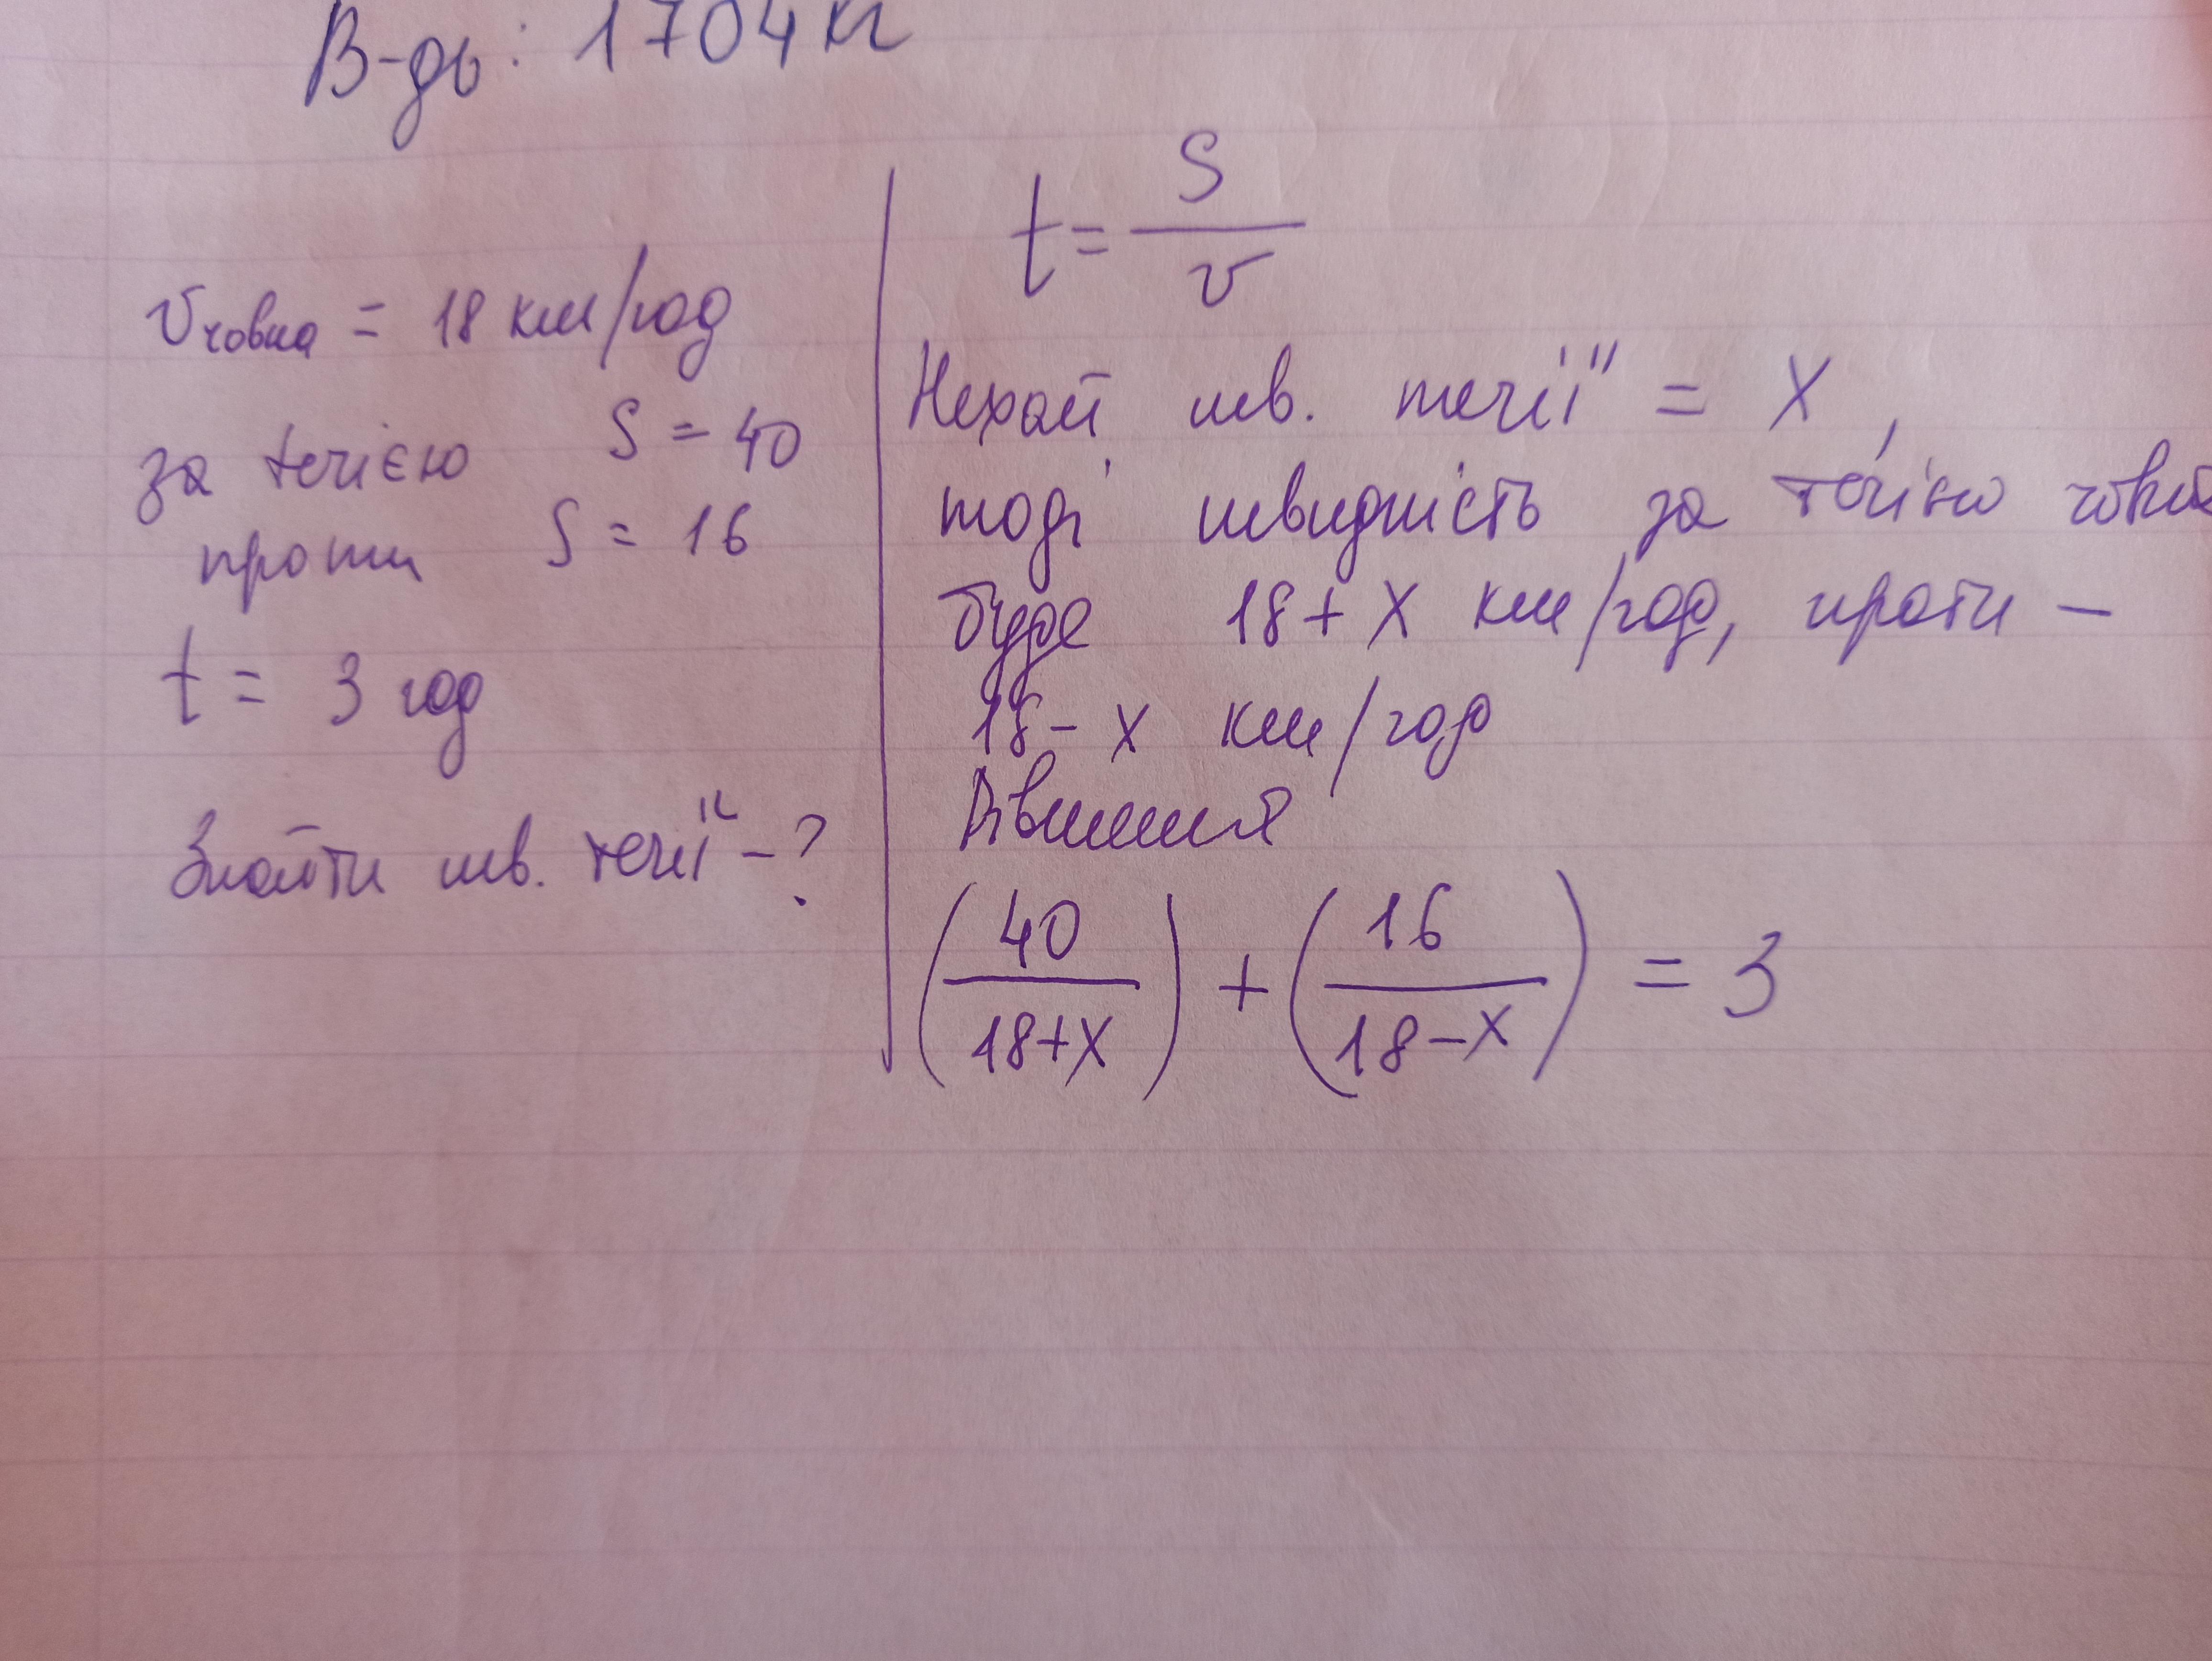 В-дь: 1704 кг
Vчовна = 18 км/год
за течією S = 40
проти S = 16
t = 3 год
Знайти шв. течії - ?
t = S / v
Нехай шв. течії = x,
тоді швидкість за течією човна
буде 18 + x км/год, проти -
18 - x км/год
Рівняння
(40 / 18+x) + (16 / 18-x) = 3